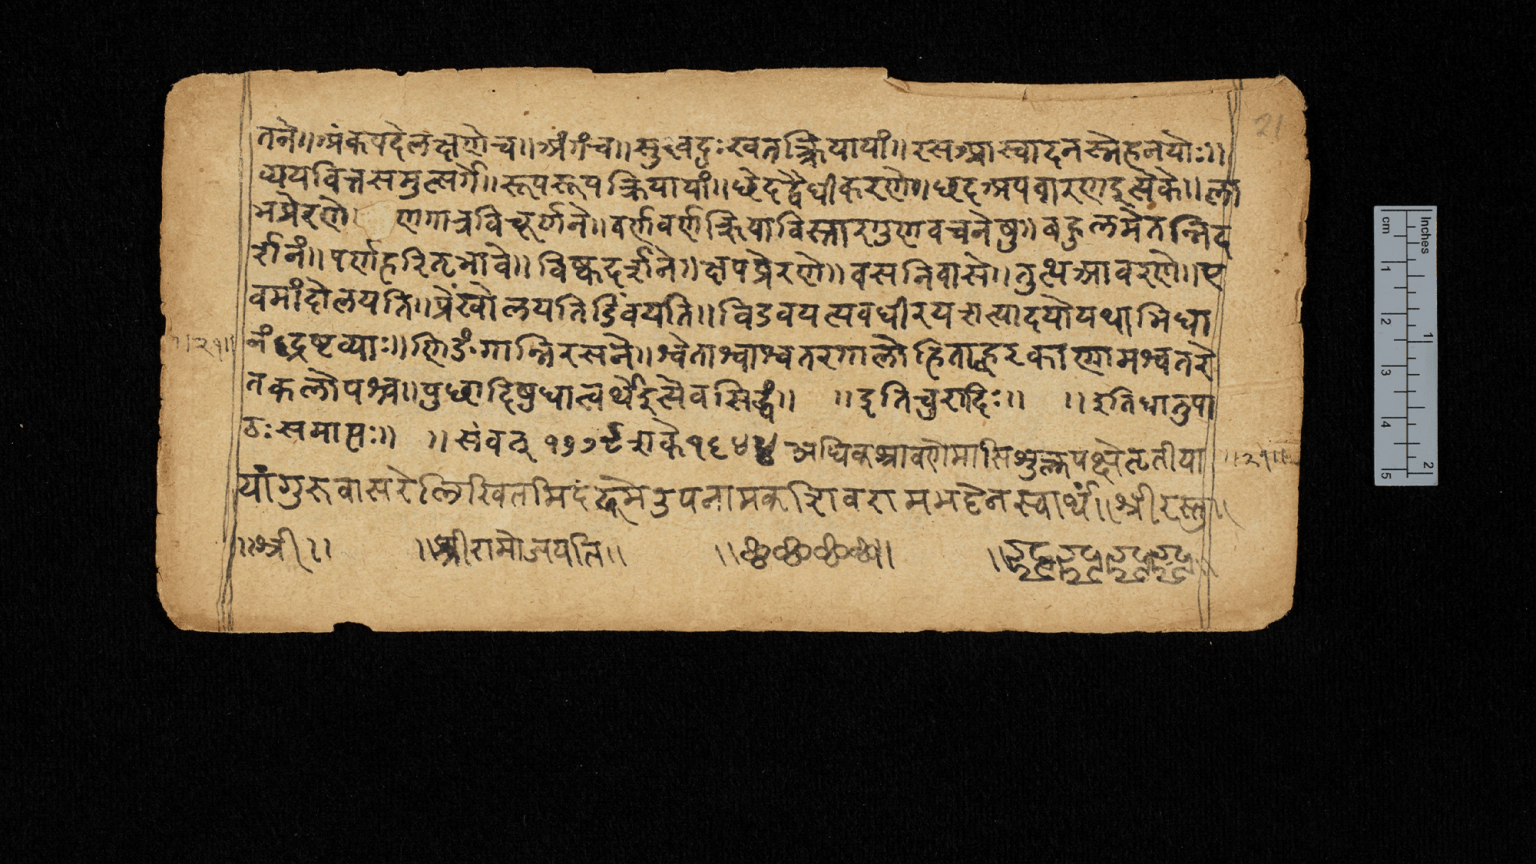 21
तने॥अंकपदेलक्षणेच॥अंगंच॥सुखदुःखतत्क्रियायां॥रसआस्वादनस्नेहनयोः॥
व्ययवित्तसमुत्सर्गे॥रूपरूपक्रियायां॥छेदद्वैधीकरणे॥छदअपवारणइत्येके॥ला
भप्रेरणे णगात्रविचूर्णने॥वर्णवर्णक्रियाविस्तारगुणवचनेषु॥बहुलमेतन्निद
र्शनं॥पर्णहरितभावे॥विष्कदर्शने॥क्षपप्रेरणे॥वसनिवासे॥तुत्थआवरणे॥ए
वमांदोलयति॥प्रेंखोलयतिडिंबयति॥विडवयत्यवधीरयत्यादयोयथाभिधा
नंद्रष्टव्याः॥णिङंगान्निरसने॥श्वेताश्वाश्वतरगालोहिताह्वरकाणामश्वतरे
तकलोपश्च॥पुछादिषुधात्वर्थेइत्येवसिद्धं॥ ॥इतिचुरादिः॥ ॥इतिधातुपा
ठः समाप्तः॥ ॥संवत् १७७९ शाके१६४४ अधिकश्रावणेमासिशुक्लपक्षेतृतीया
यांगुरुवासरेलिखितमिदं उपनामकशिवरामभट्टेनस्वार्थं॥श्रीरस्तु॥
॥श्री॥ ॥श्रीरामोजयति॥ ॥छ॥छ॥छ॥छ॥
॥२१॥
॥२१॥